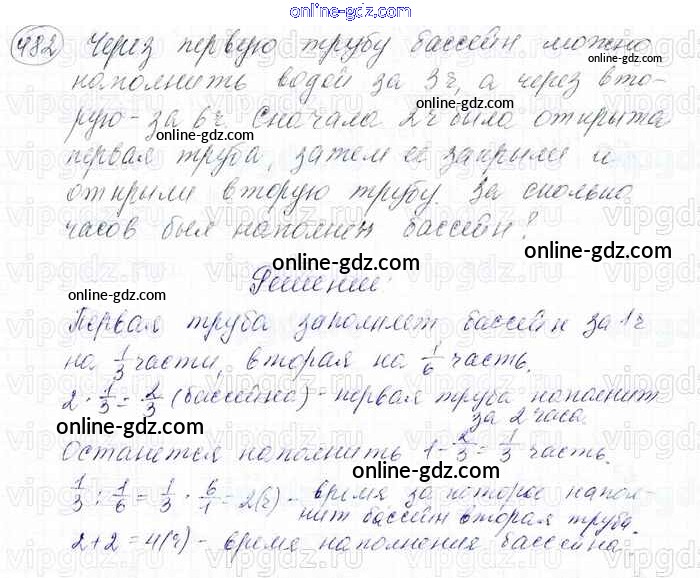 online-gdz.com
482 Через первую трубу бассейн можно
online-gdz.com
наполнить водой за 3ч, а через вто-
online-gdz.com
рую - за 6ч. Сначала 2ч была открыта
online-gdz.com
первая труба, затем её закрыли и
открыли вторую трубу. За сколько
часов был наполнен бассейн?
online-gdz.com
vipgdz.ru
Решение:
online-gdz.com
Первая труба заполняет бассейн за 1ч
на 1/3 части, вторая на 1/6 часть.
2 · 1/3 = 2/3 (бассейна) - первая труба наполнит
за 2 часа.
online-gdz.com
Останется наполнить 1 - 2/3 = 1/3 часть.
online-gdz.com
1/3 : 1/6 = 1/3 · 6/1 = 2(ч) - время за которое напол-
нит бассейн вторая труба.
online-gdz.com
2+2 = 4(ч) - время наполнения бассейна.